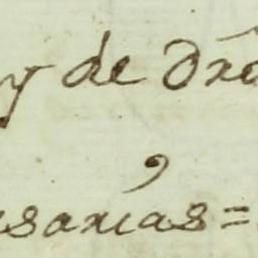 y de dro
esarias=